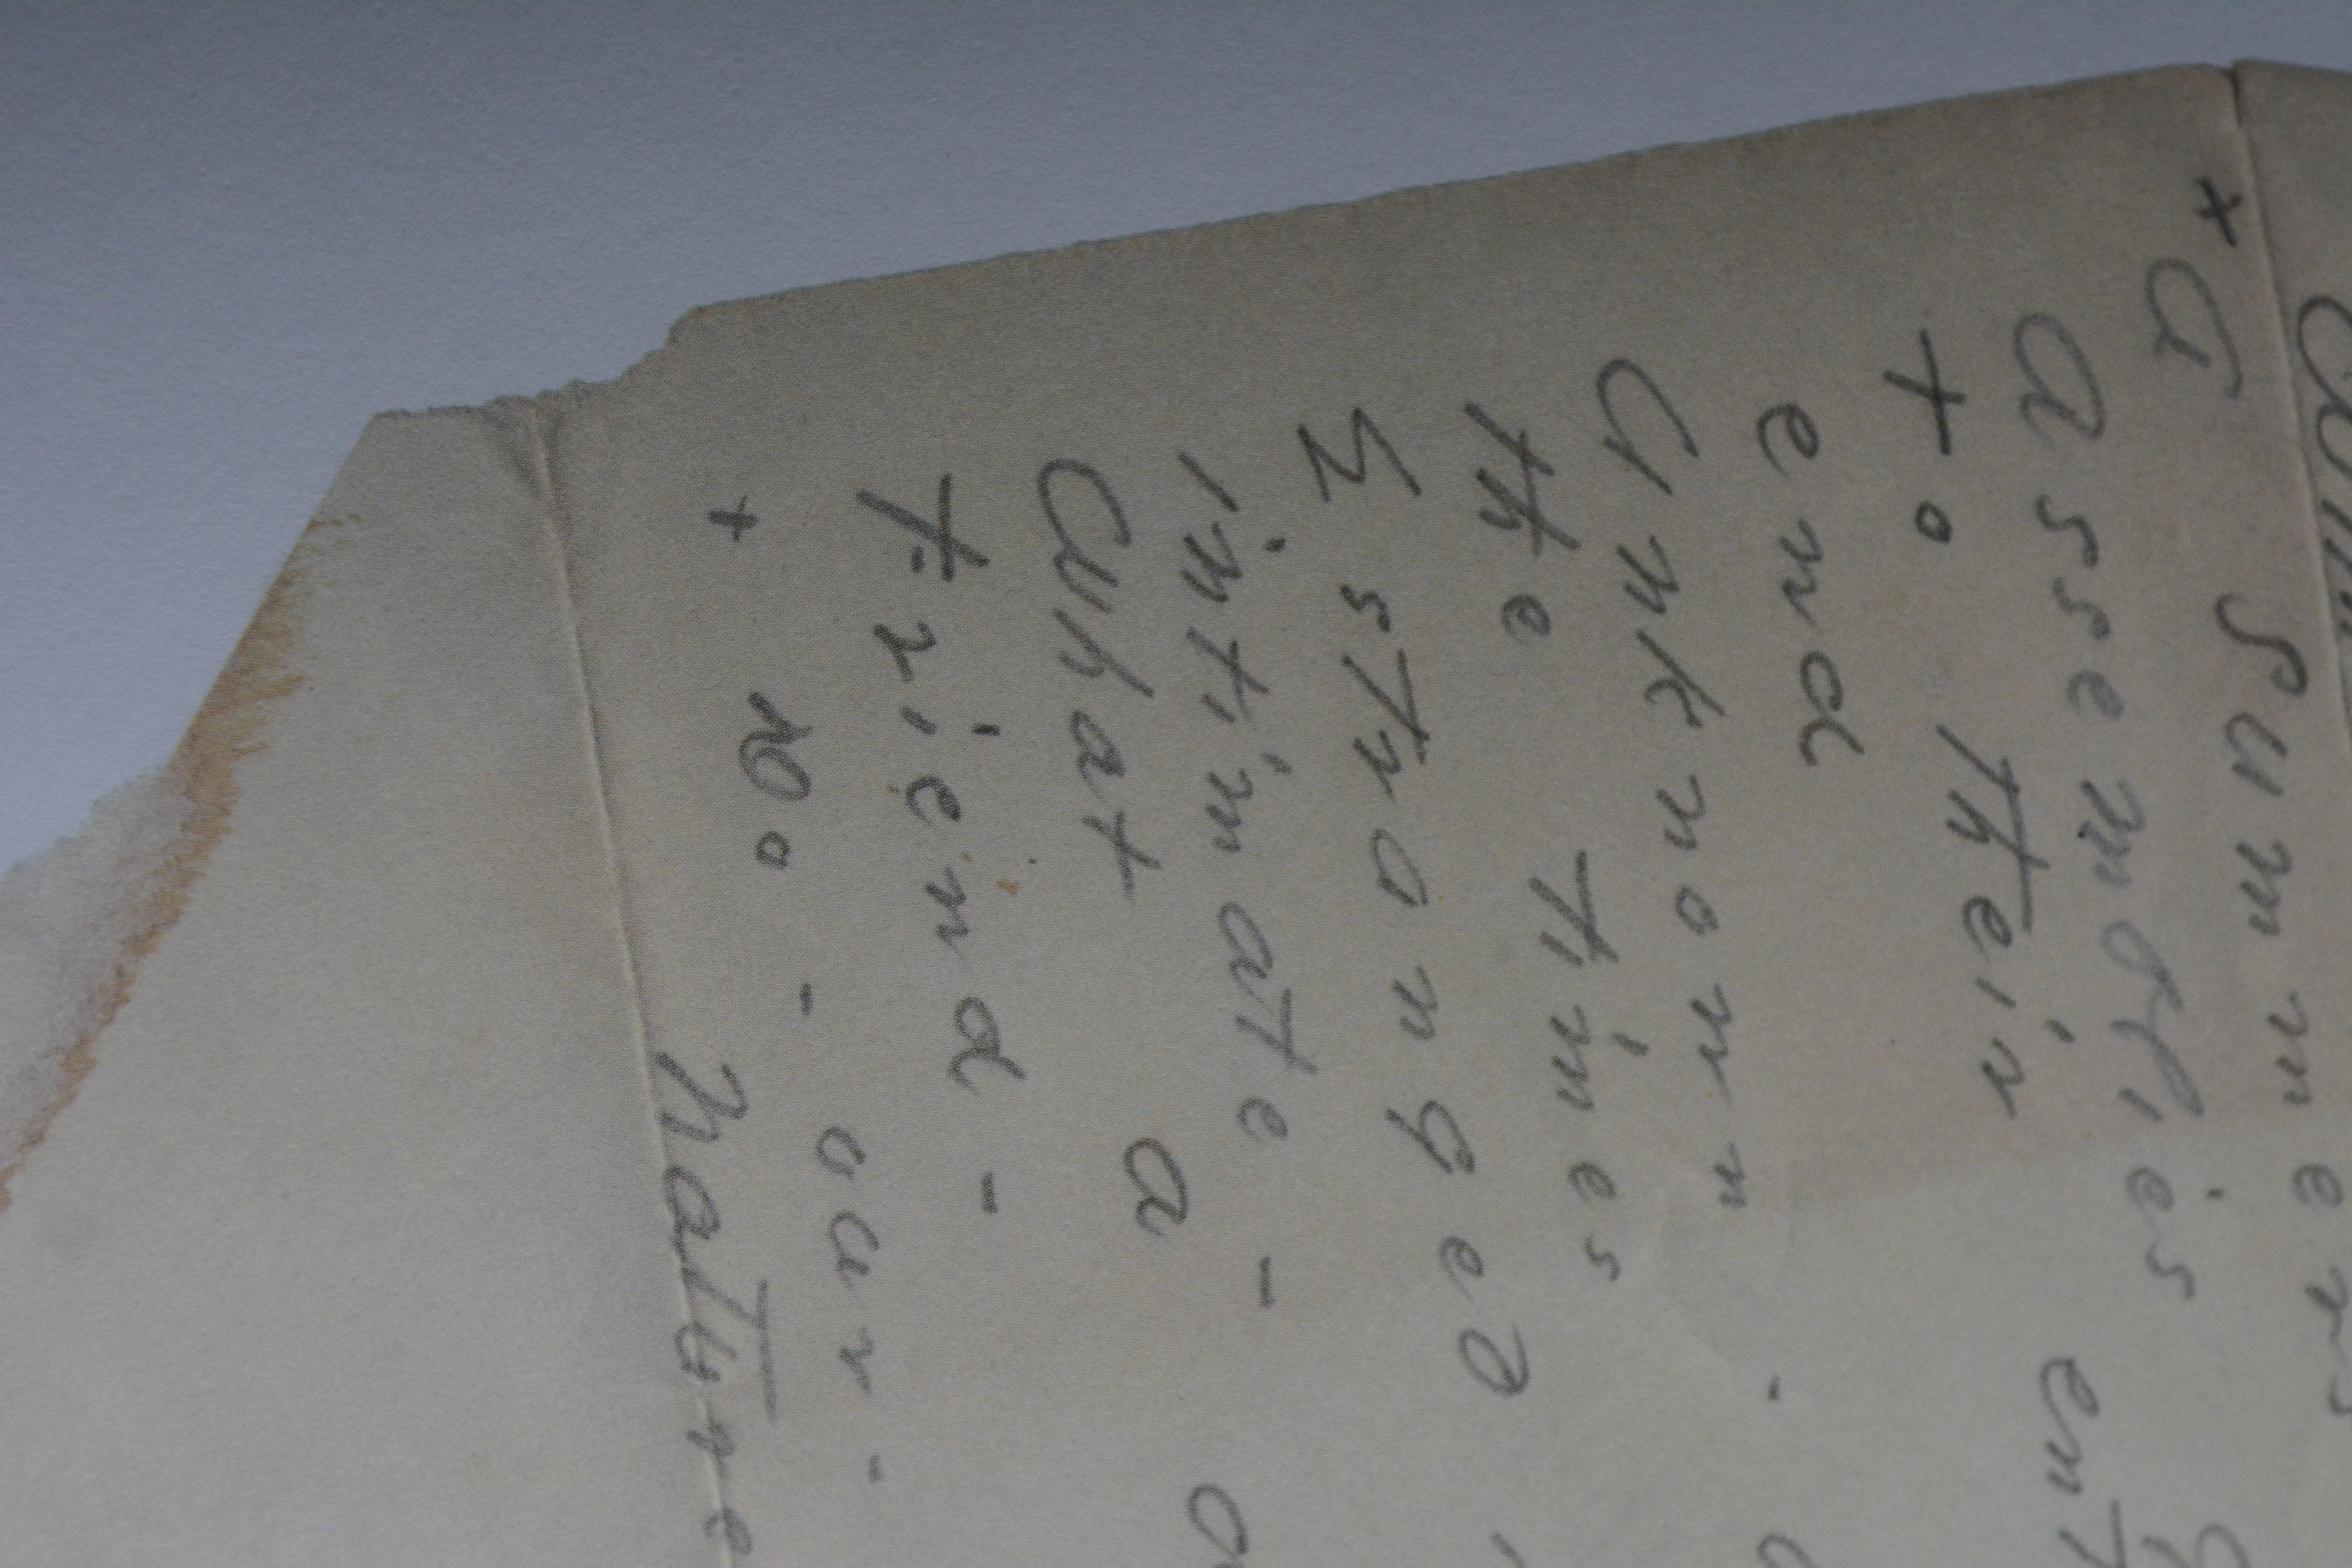 + A Summers
Assemblies
to their
end
Unknown -
the times
Estranged
intimate -
What a
Friend -
+ Do - our -
Nature